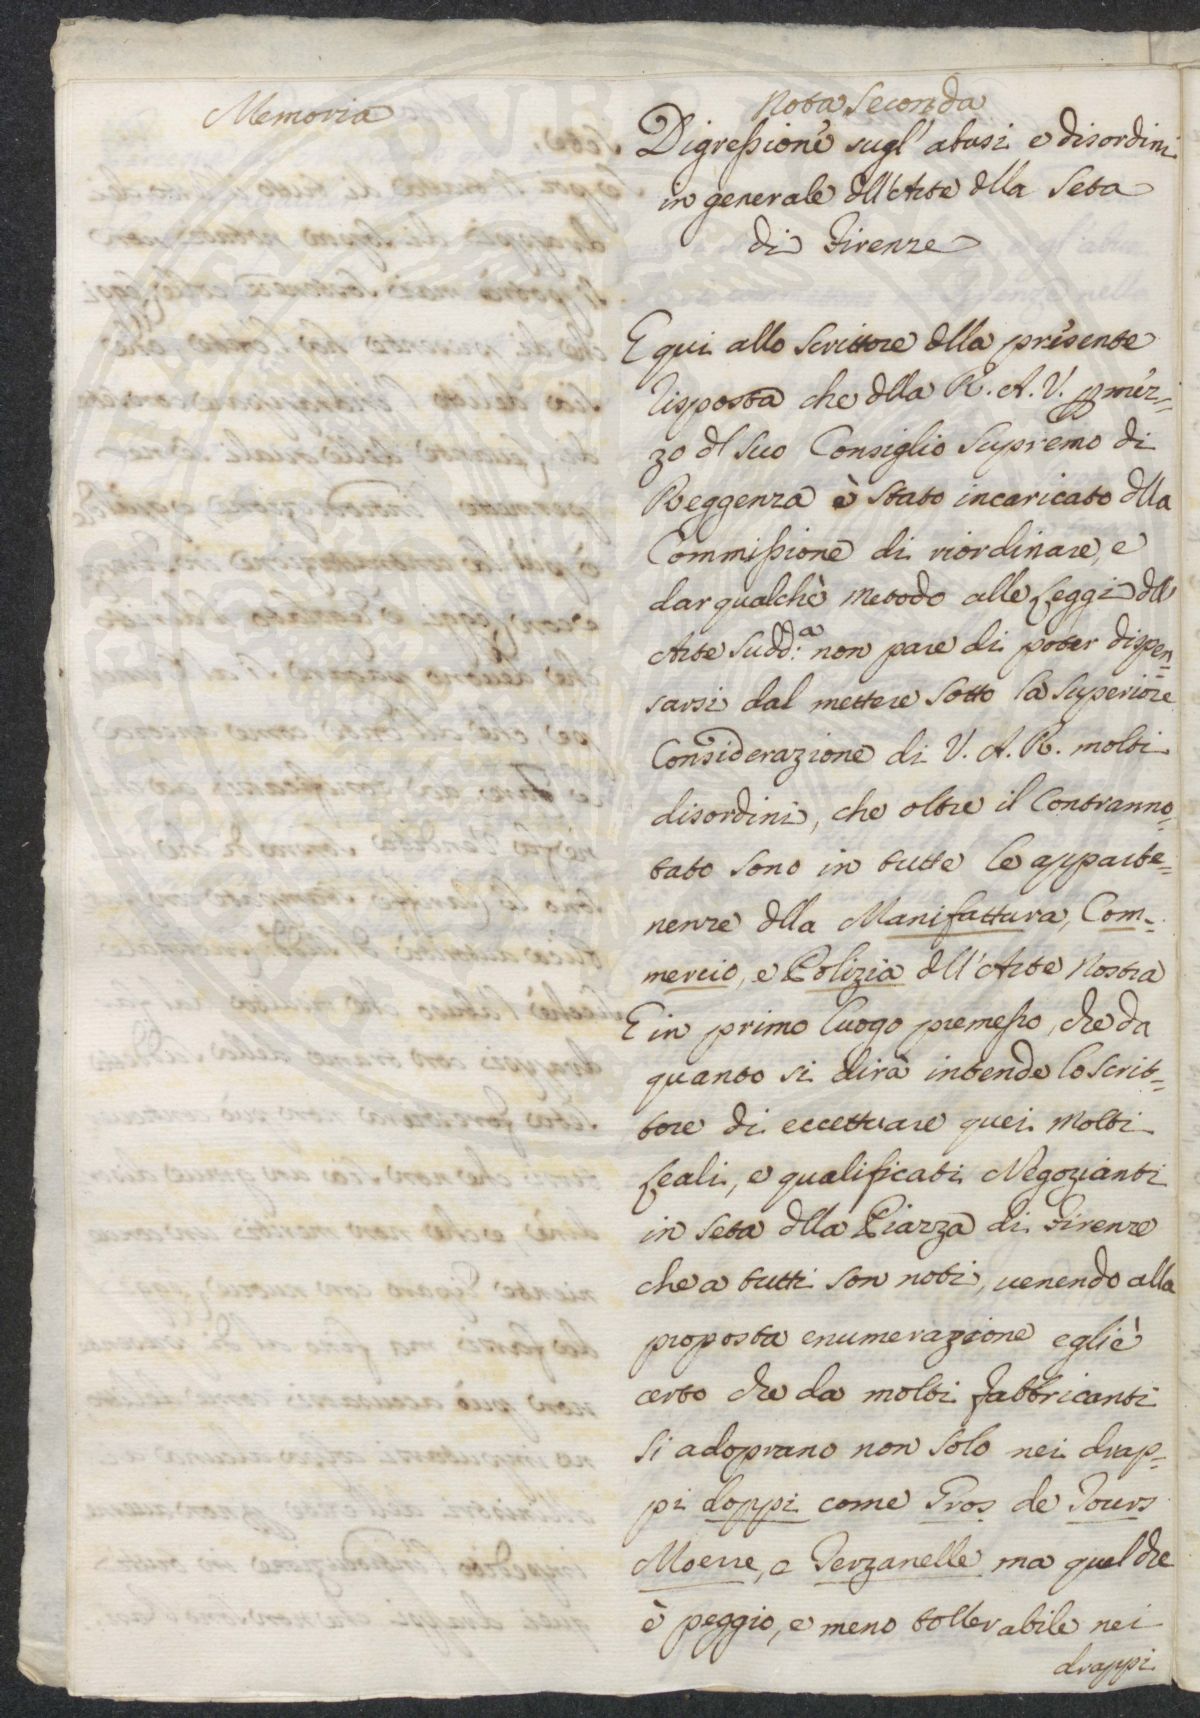 Memoria
Nota Seconda
Digressione sugl' abusi e disordini
in generale dll'Arte dlla Seta
di Firenze
E qui allo Scrittore dlla presente
risposta che dlla R. A. V. p mez=
zo dl suo Consiglio Supremo di
Reggenza è stato incaricato dlla
Commissione di riordinare, e
dar qualchè metodo alle Leggi dll
Arte Sudd:a non pare di poter dispen=
sarsi dal mettere sotto la Superiore
Considerazione di V. A. R. molti
disordini, che oltre il Contranno=
tato sono in tutte le apparte=
nenze dlla Manifattura, Com=
mercio, e Polizia dll'Arte Nostra
E in primo luogo premesso, che da
quanto si dirà intende lo Scrit=
tore di eccettuare quei molti
Leali, e qualificati Negozianti
in Seta dlla Piazza di Firenze
che a tutti son noti, venendo alla
proposta enumerazione egliè
certo che da molti fabbricanti
si adoprano non solo nei drap=
pi doppi come Gros de Tours
Moerre, e Terzanelle ma quel che
è peggio, e meno tollerabile nei
drappi